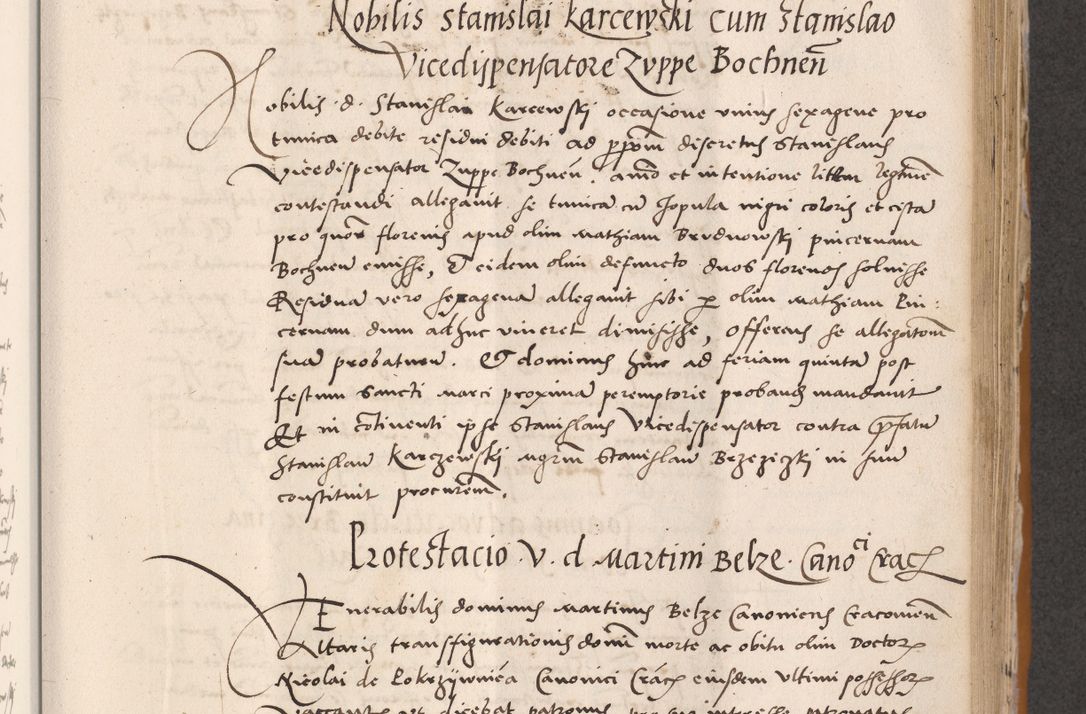 Nobilis Stanislai Karcewski cum Stanislao
Vicedispensatore Zuppe Bochnen̄
Nobilis d. Stanislai Karcewskj occasione unius sexagene pro
tunica debite residui debiti ad p̱pom discretus Stanislaus
Vicedispensator Zuppe Bochnen̄. animo et intentione litem legitime
contestandi allegavit se tunicā cū Jopula nigri coloris et cistā
pro quor florenis apud olim Mathiam Brudnowskj pincernam
Bochnen̄ emisse, Et eidem olim defuncto duos florenos solvisse
Residuā vero sexagenā allegavit sibi p̱ olim Mathiam Pin:
cernam dum adhuc viveret dimisisse, offerens se allegatōm
suā probaturū. Et dominus hinc ad feriam quintā post
festum Sancti Marci proximā peremptorie probandū mandavit
Et in cōtinenti ipse Stanislaus Vicedispensator contra p̄fatū
Stanislaū Karczewskj Mgrm̄ Stanislaū Brzeziczkj in suū
constituit procurem̄.
Protestacio V. d. Martini Belze. Canoci Crac̄
Venerabilis dominus Martinus Belze Canonicus Cracovien̄
Altaris transfigurationis domini morte ac obitu olim Doctor̄
Nicolai de Pokrzÿwnica Canonici Crac̄ eiusdem ultimi possessor̄
vacantis ut dicebat patronus pro sui interesse patronatus